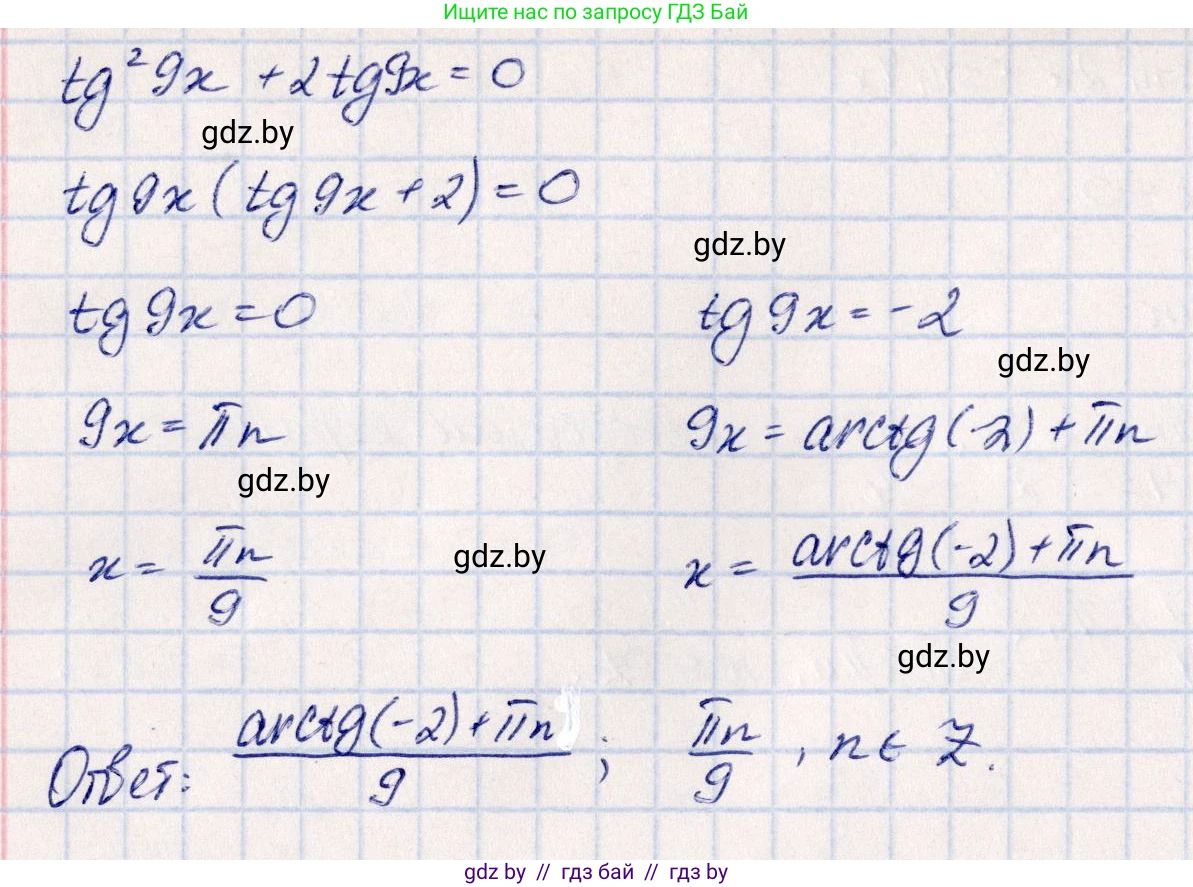 Ищите нас по запросу ГДЗ Бай
tg² 9x + 2 tg 9x = 0
gdz.by
tg 9x (tg 9x + 2) = 0
gdz.by
tg 9x = 0
tg 9x = -2
gdz.by
9x = πn
9x = arctg(-2) + πn
gdz.by
x = πn/9
gdz.by
x = (arctg(-2) + πn)/9
gdz.by
Ответ: (arctg(-2) + πn)/9 ; πn/9 , n ∈ Z.
gdz by // гдз бай // gdz by